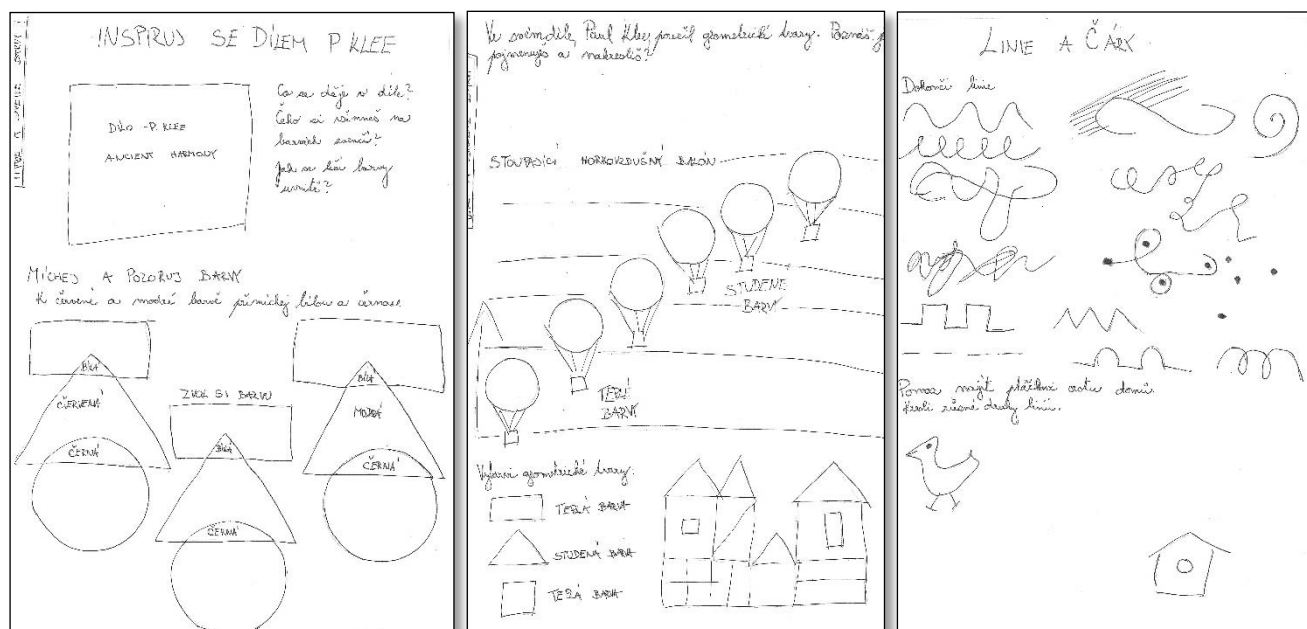 INSPIRUJ SE DÍLEM P KLEE
DÍLO - P. KLEE
ANCIENT HARMONY
Co se děje v díle?
Čeho si všímáš na
barvách
Jak se liší barvy
uvnitř?
MÍCHEJ A POZORUJ BARVY
K červené a modré barvě přimíchej bílou a černou.
BÍLÁ
ČERVENÁ
ČERNÁ
ZVOL SI BARVU
BÍLÁ
ČERNÁ
BÍLÁ
MODRÁ
ČERNÁ
Ve svém díle, Paul Klee použil geometrické tvary. Poznáš je
pojmenuješ a nakreslíš?
STOUPAJÍCÍ HORKOVZDUŠNÝ BALÓN
STUDENÉ
BARVY
TEPLÉ
BARVY
Vybarvi geometrické tvary.
TEPLÁ BARVA
STUDENÁ BARVA
TEPLÁ BARVA
LINIE A ČÁRY
Dokonči linie
Pomoz najít ptáčkovi cestu domů.
Kresli různé druhy linií.